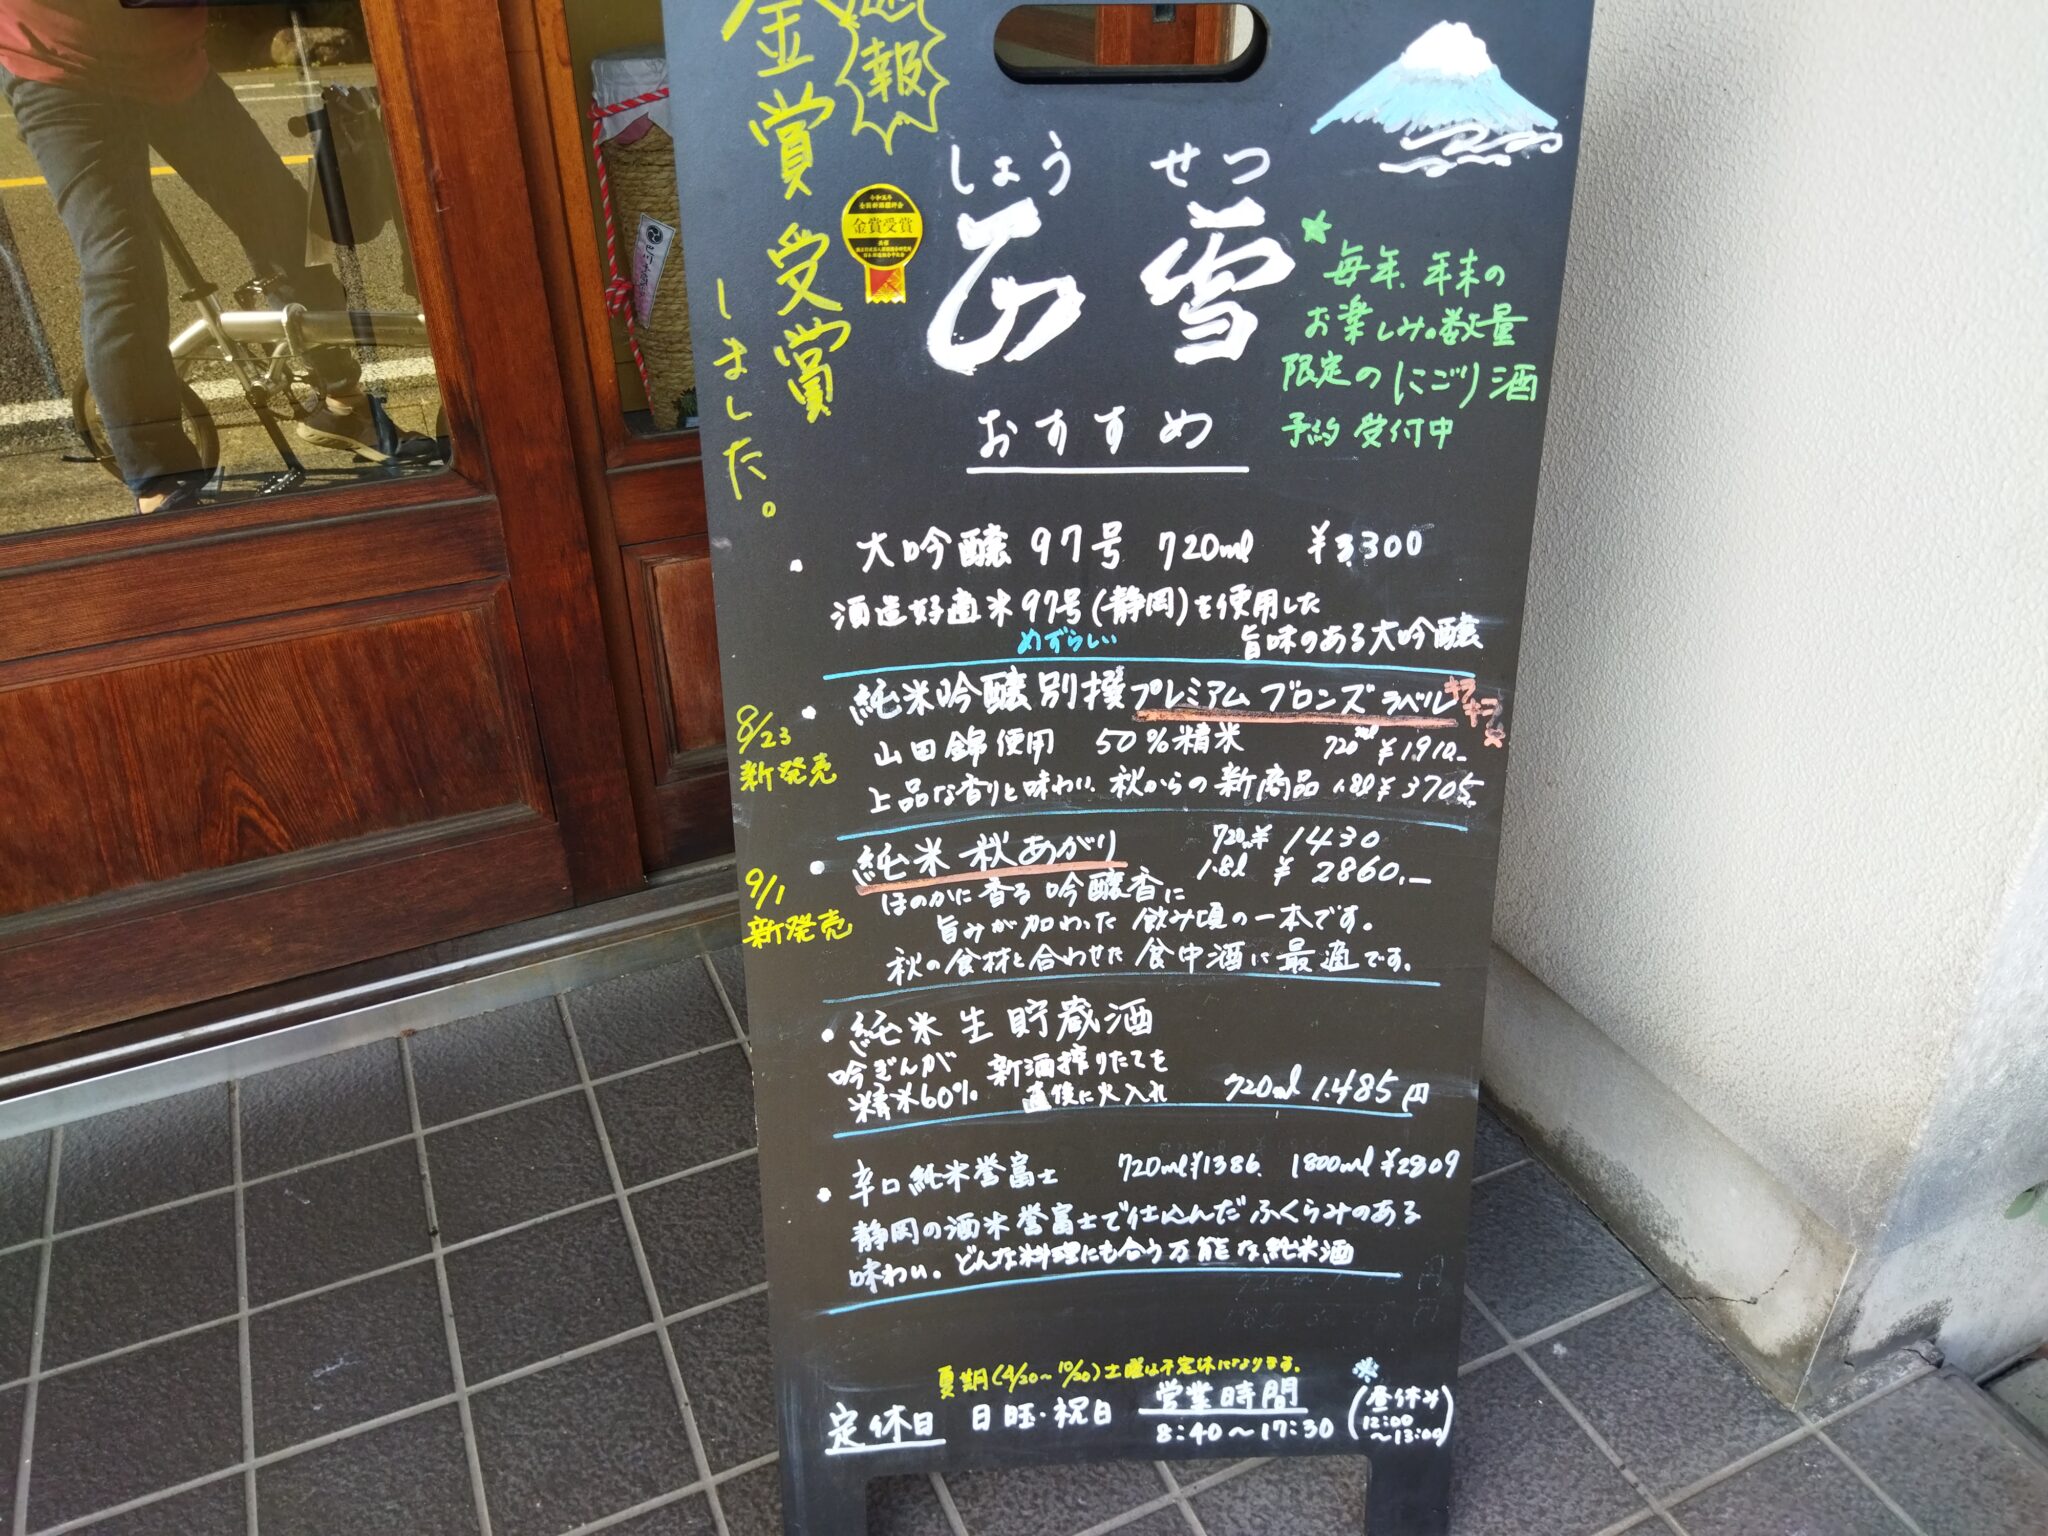 報
金賞受賞
しました。
金賞受賞
しょう せつ
正雪
おすすめ
毎年、年末の
お楽しみの数量
限定のにごり酒
予約受付中
・大吟醸 97号 720ml ¥3,300
酒造好適米97号(静岡)を使用した
めずらしい
旨味のある大吟醸
8/23
新発売
・純米吟醸別撰プレミアムブロンズラベル
キラキラ
山田錦使用 50%精米 720ml ¥1910.-
上品な香りと味わい 秋からの新商品 1.8l ¥3705.-
9/1
新発売
・純米 秋あがり 720ml ¥1430
1.8l ¥2860.―
ほのかに香る吟醸香に
旨みが加わった飲み頃の一本です。
秋の食材と合わせた食中酒に最適です。
・純米生貯蔵酒
吟ぎんが 新酒搾りたてを
精米60% 直後に火入れ 720ml 1.485円
・辛口純米誉富士 720ml¥1386. 1800ml¥2809
静岡の酒米誉富士で仕込んだふくらみのある
味わい。どんな料理にも合う万能な純米酒
夏期(4/20〜10/20)土曜は不定休になります。
定休日 日曜・祝日 営業時間
8:40〜17:30
(昼休み
12:00
〜13:00)